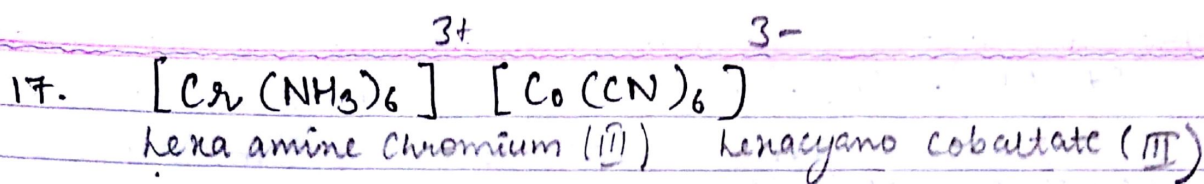 3+ 3-
17. [Cr (NH3)6] [Co (CN)6]
hexa amine Chromium (III) hexacyano cobaltate (III)